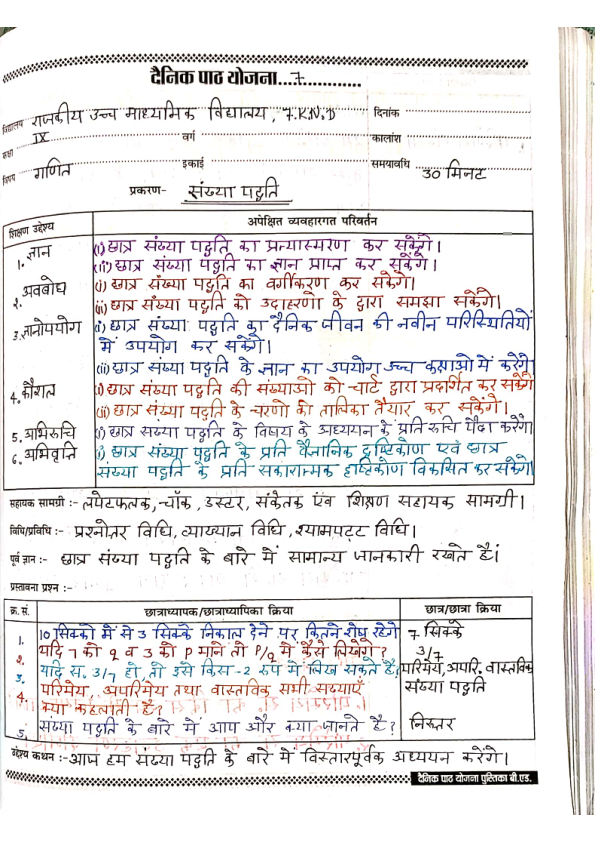 दैनिक पाठ योजना...7............
विद्यालय राजकीय उच्च माध्यमिक विद्यालय, 7.K.N.D दिनांक
कक्षा IX वर्ग कालांश
विषय गणित इकाई समयावधि 30 मिनट
प्रकरण- संख्या पद्धति
शिक्षण उद्देश्य अपेक्षित व्यवहारगत परिवर्तन
1. ज्ञान (i) छात्र संख्या पद्धति का प्रत्यास्मरण कर सकेंगे।
(ii) छात्र संख्या पद्धति का ज्ञान प्राप्त कर सकेंगे।
2. अवबोध (i) छात्र संख्या पद्धति का वर्गीकरण कर सकेंगे।
(ii) छात्र संख्या पद्धति को उदाहरणो के द्वारा समझा सकेंगे।
3. ज्ञानोपयोग (i) छात्र संख्या पद्धति का दैनिक जीवन की नवीन परिस्थितियों
में उपयोग कर सकेंगे।
(ii) छात्र संख्या पद्धति के ज्ञान का उपयोग उच्च कक्षाओ में करेंगे।
4. कौशल (i) छात्र संख्या पद्धति की संख्याओ को चार्ट द्वारा प्रदर्शित कर सकेंगे
(ii) छात्र संख्या पद्धति के चरणो की तालिका तैयार कर सकेंगे।
5. अभिरुचि (i) छात्र संख्या पद्धति के विषय के अध्ययन के प्रति रुचि पैदा करेंगे।
6. अभिवृति (i) छात्र संख्या पद्धति के प्रति वैज्ञानिक दृष्टिकोण एवं छात्र
संख्या पद्धति के प्रति सकारात्मक दृष्टिकोण विकसित कर सकेंगे।
सहायक सामग्री :- लपेटफलक, चॉक, डस्टर, संकेतक एंव शिक्षण सहायक सामग्री।
विधि/प्रविधि :- प्रश्नोतर विधि, व्याख्यान विधि, श्यामपट्ट विधि।
पूर्व ज्ञान :- छात्र संख्या पद्धति के बारे में सामान्य जानकारी रखते है।
प्रस्तावना प्रश्न :-
क्र. सं. छात्राध्यापक/छात्राध्यापिका क्रिया छात्र/छात्रा क्रिया
1. 10 सिक्को में से 3 सिक्के निकाल देने पर कितने शेष रहेंगे 7 सिक्के
2. यदि 7 को q व 3 को P माने तो P/q में कैसे लिखेंगे ? 3/7
3. यदि सं. 3/7 हो, तो इसे किस-2 रूप में लिख सकते है। परिमेय, अपरि. वास्तविक
4. परिमेय, अपरिमेय तथा वास्तविक सभी संख्याएँ संख्या पद्धति
क्या कहलाती है ?
5. संख्या पद्धति के बारे में आप और क्या जानते है ? निरुतर
उद्देश्य कथन :- आज हम संख्या पद्धति के बारे में विस्तारपूर्वक अध्ययन करेंगे।
दैनिक पाठ योजना पुस्तिका बी.एड.